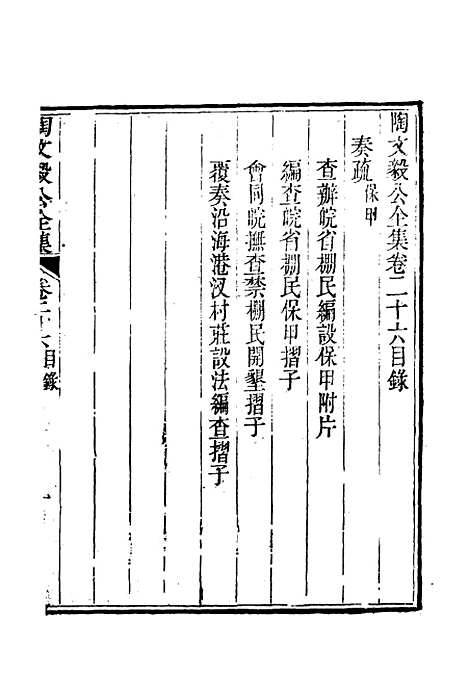 陶文毅公全集卷二十六目錄
奏疏保甲
查辦皖省棚民編設保甲附片
編查皖省棚民保甲摺子
會同皖撫查禁棚民開墾摺子
覆奏沿海港汊村莊設法編查摺子
陶文毅公全集
卷二十六目錄
一